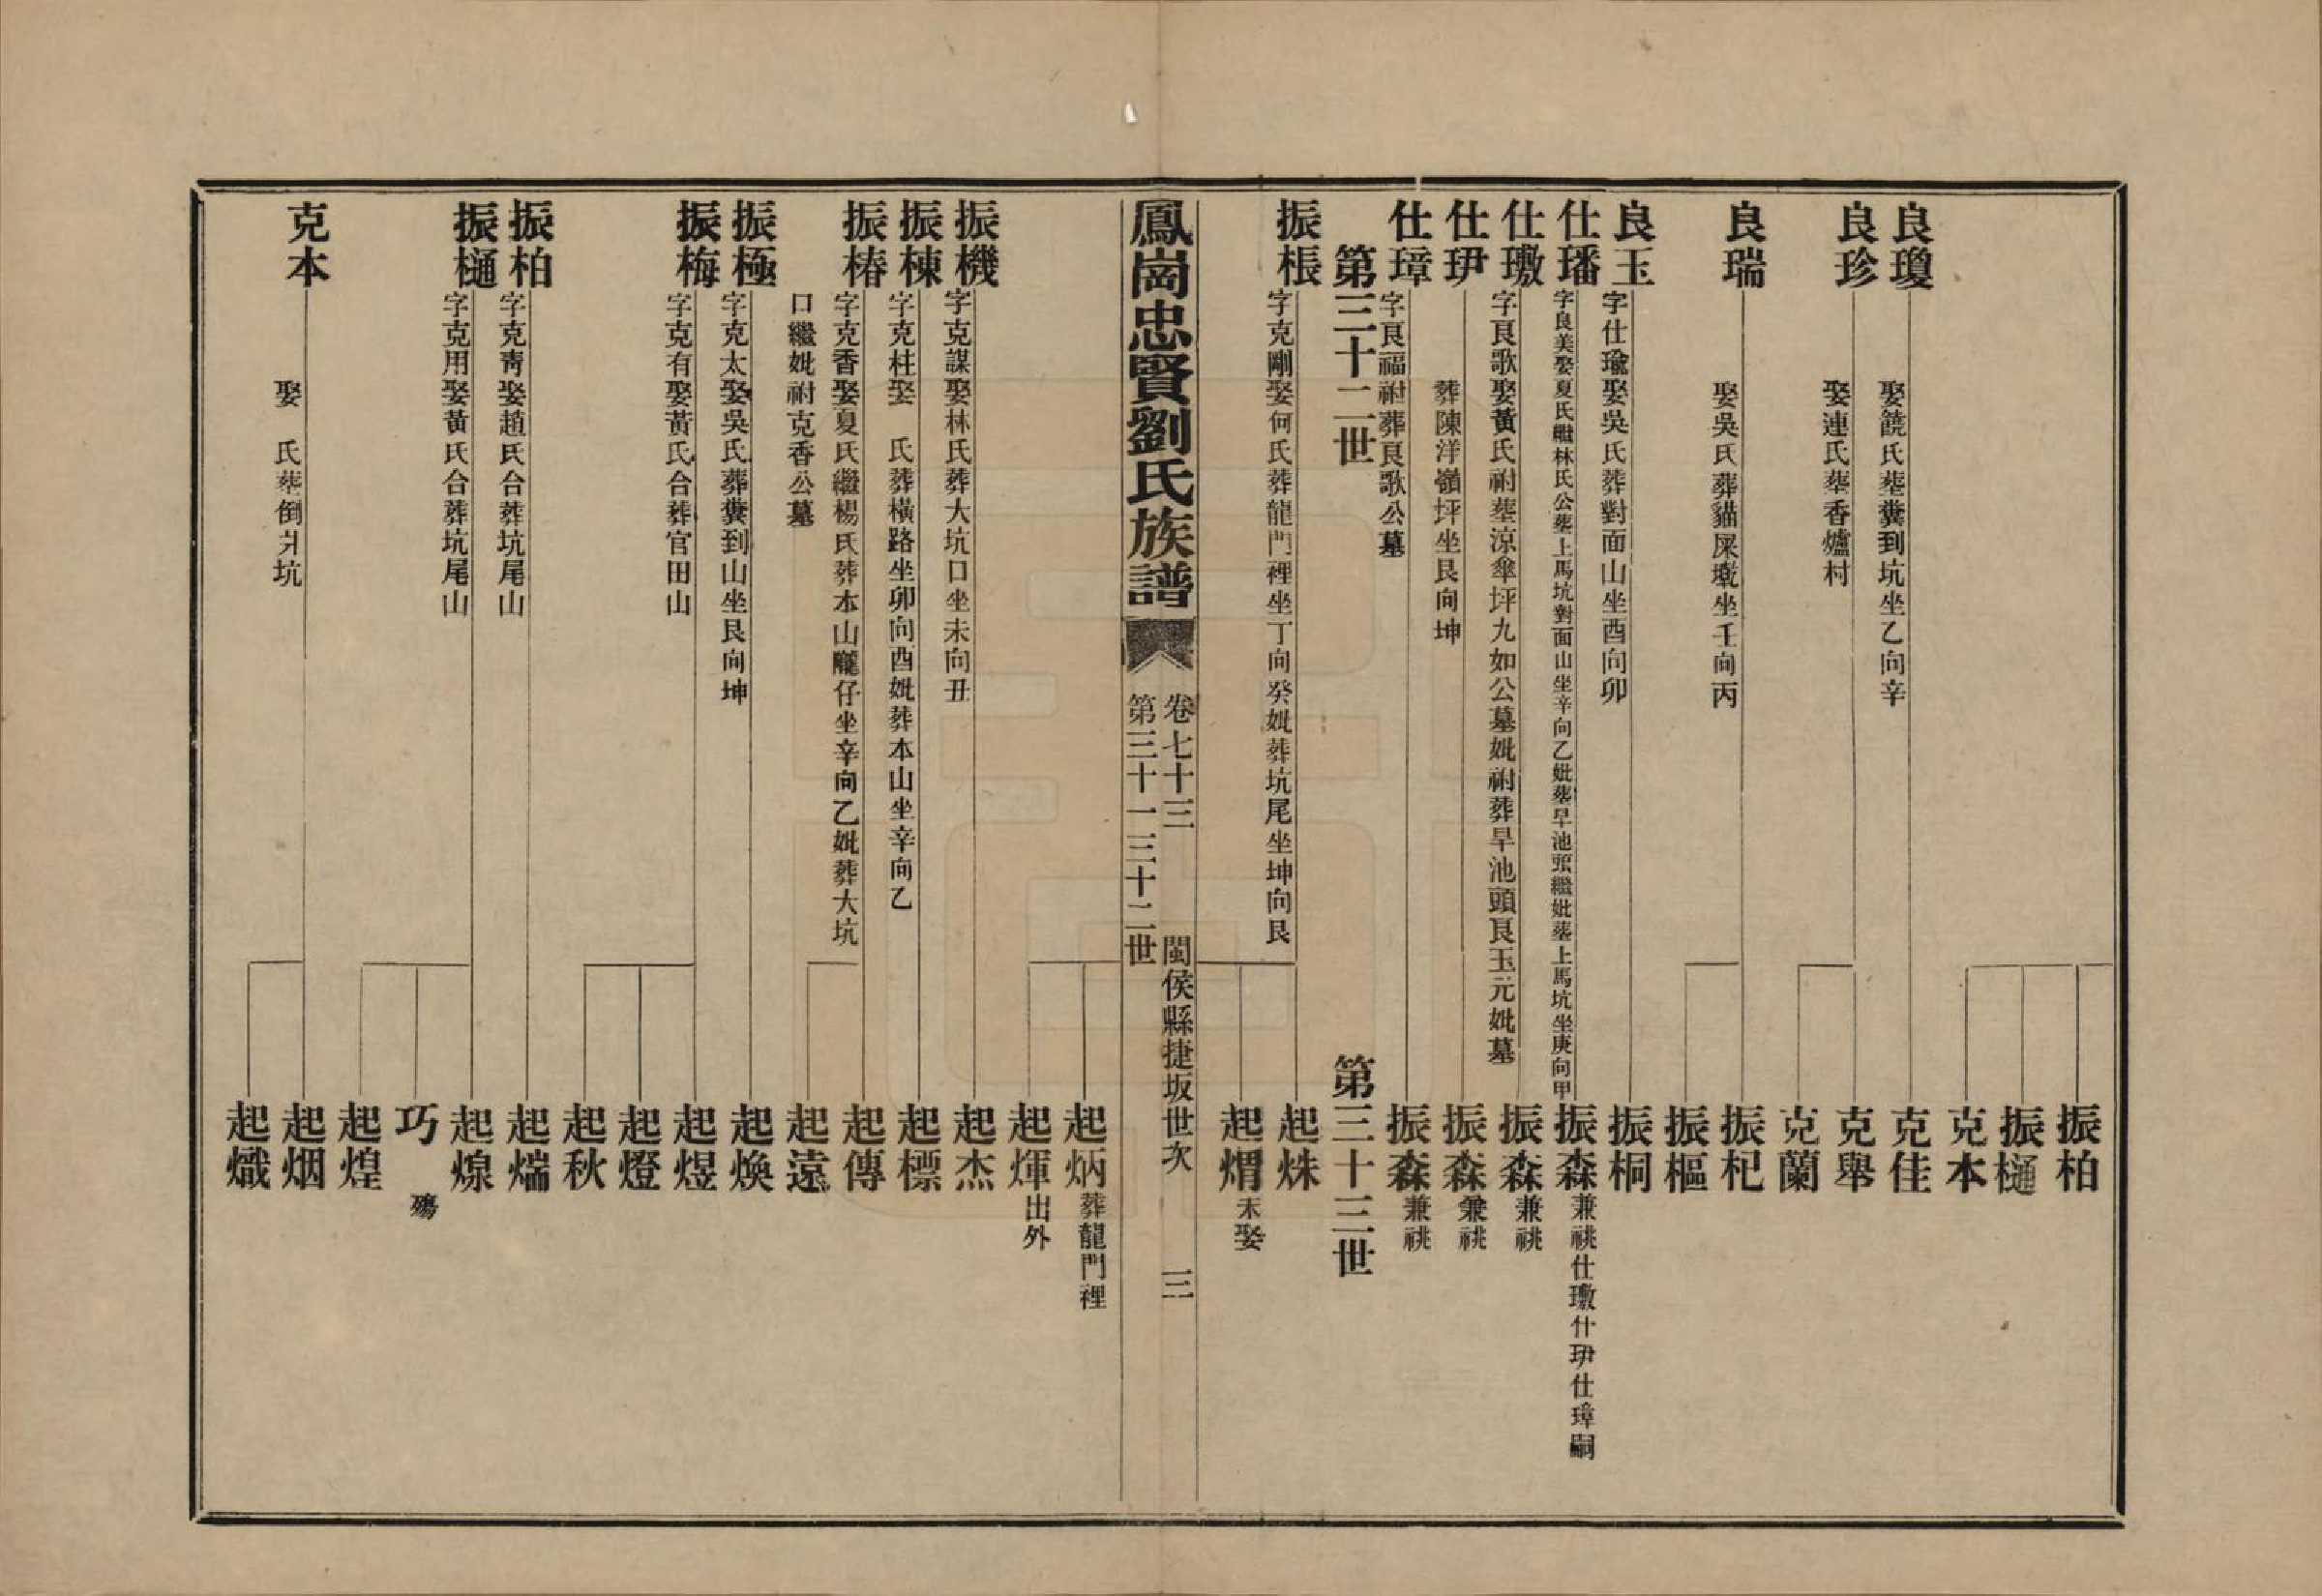 振柏
振樋
克本
良瓊 娶饒氏塟糞到坑坐乙向辛 克佳
良珍 娶連氏塟香爐村 克舉
克蘭
良瑞 娶吳氏葬貓屎墘坐壬向丙 振杞
振樞
良玉 字仕瑜娶吳氏葬對面山坐酉向卯 振桐
仕璠 字良美娶夏氏繼林氏公塟上馬坑對面山坐辛向乙妣塟旱池頭繼妣塟上馬坑坐庚向甲 振森 兼祧仕璥什玬仕璋嗣
仕璥 字良歌娶黃氏祔塟涼傘坪九如公墓妣祔葬旱池頭良玉元妣墓 振森 兼祧
仕玬 葬陳洋嶺坪坐艮向坤 振森 兼祧
仕璋 字良福祔葬良歌公墓 振森 兼祧
第三十二世 第三十三世
振棖 字克剛娶何氏葬龍門裡坐丁向癸妣葬坑尾坐坤向艮 起烌
起煟 未娶
鳳崗忠賢劉氏族譜 卷七十三 閩侯縣捷坂世次 三
第三十一三十二世
起炳 葬龍門裡
起煇 出外
振機 字克謀娶林氏葬大坑口坐未向丑 起杰
振棟 字克柱娶 氏葬橫路坐卯向酉妣葬本山坐辛向乙 起標
振椿 字克香娶夏氏繼楊氏葬本山隴仔坐辛向乙妣葬大坑 起傳
口繼妣祔克香公墓 起遠
振極 字克太娶吳氏葬糞到山坐艮向坤 起煥
振梅 字克有娶黃氏合葬官田山 起煜
起燈
起秋
振柏 字克靑娶趙氏合葬坑尾山 起煓
振樋 字克用娶黃氏合葬坑尾山 起㷧
巧 殤
起煌
克本 娶 氏塟倒爿坑 起烟
起熾